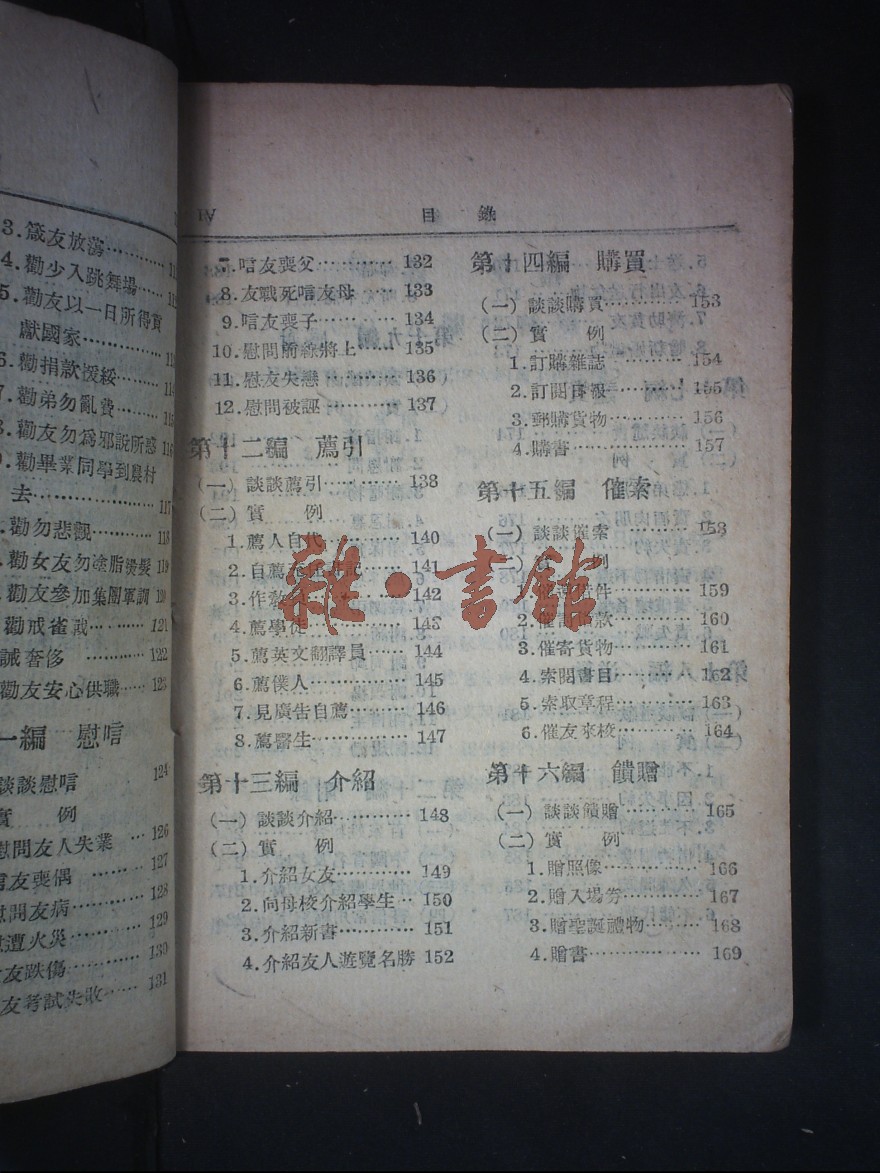 3.箴友放蕩
4.勸少入跳舞場
5.勸友以一日所得貢
獻國家
6.勸捐款援綏
7.勸弟勿亂費 115
勸友勿爲邪說所惑 116
勸畢業同學到農村
去 117
勸勿悲觀 118
勸女友勿塗脂燙髮 119
勸友參加集團軍訓 120
勸戒雀戰 121
誡奢侈 122
勸友安心供職 123
一編 慰唁
談談慰唁 124
實 例
慰問友人失業 126
唁友喪偶 127
慰問友病 128
慰遭火災 129
友跌傷 130
友考試失敗 131
IV 目錄
7.唁友喪父 132
8.友戰死唁友母 133
9.唁友喪子 134
10.慰問前線將士 135
11.慰友失戀 136
12.慰問被誣 137
第十二編 薦引
(一)談談薦引 138
(二)實 例
1.薦人自代 140
2.自薦充 記 141
3.作敎 142
4.薦學徒 143
5.薦英文翻譯員 144
6.薦僕人 145
7.見廣告自薦 146
8.薦醫生 147
第十三編 介紹
(一)談談介紹 148
(二)實 例
1.介紹女友 149
2.向母校介紹學生 150
3.介紹新書 151
4.介紹友人遊覽名勝 152
第十四編 購買
(一)談談購買 153
(二)實 例
1.訂購雜誌 154
2.訂閱日報 155
3.郵購貨物 156
4.購書 157
第十五編 催索
(一)談談催索 158
(二)實 例
1.催 件 159
2.催 款 160
3.催寄貨物 161
4.索閱書目 162
5.索取章程 163
6.催友來校 164
第十六編 饋贈
(一)談談饋贈 165
(二)實 例
1.贈照像 166
2.贈入場券 167
3.贈聖誕禮物 168
4.贈書 169
雜·書館